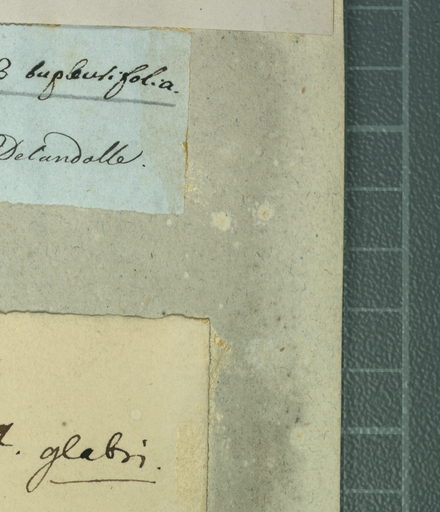 β bupleurifolia.
Decandolle.
glabri.